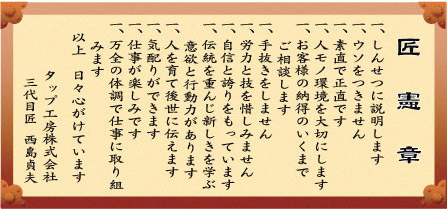 匠憲章
一、しんせつに説明します
一、ウソをつきません
素直で正直です
一、人モノ環境を大切にします
一、お客様の納得のいくまで
ご相談します
一、手抜きをしません
一、労力と技を惜しみません
一、自信と誇りをもっています
一、伝統を重んじ新しきを学ぶ
意欲と行動力があります
一、人を育て後世に伝えます
一、気配りができます
一、仕事が楽しみです
一、万全の体調で仕事に取り組
みます
以上　日々心がけています
タップ工房株式会社
三代目匠　西島貞夫